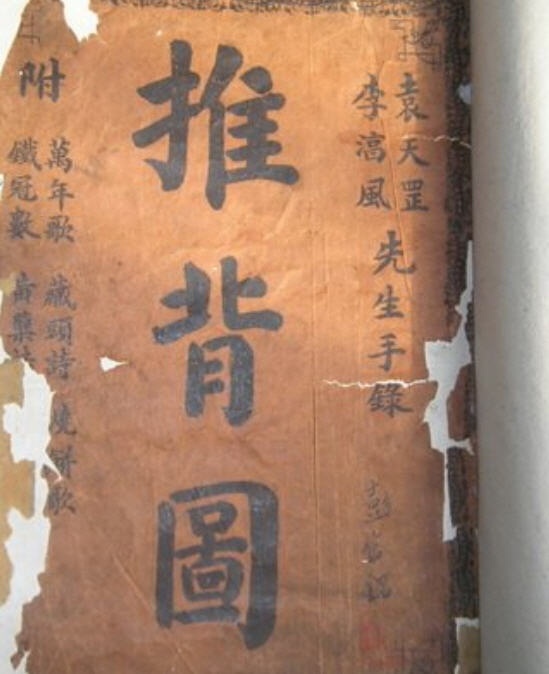 袁天罡
李淳風
先生手錄
推背圖
附
萬年歌 藏頭詩 燒餅歌
鐵冠數 黃蘗